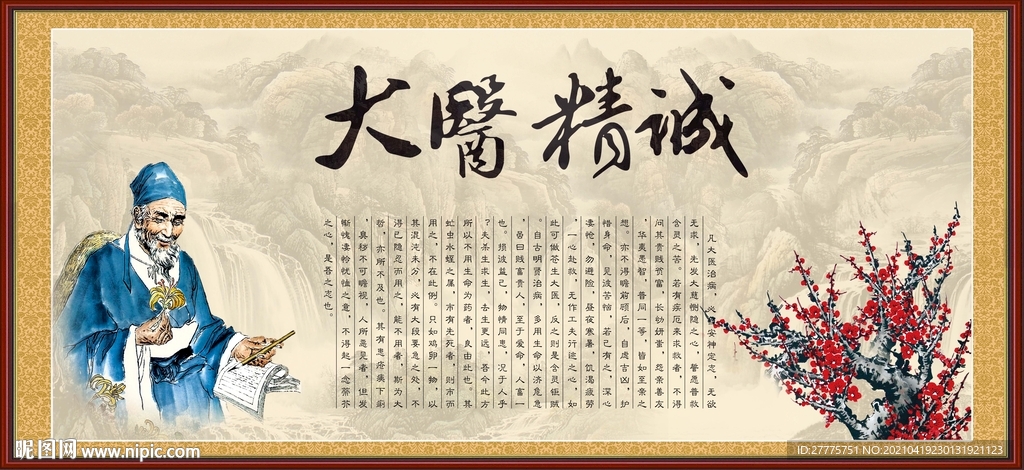 大醫精誠
凡大医治病，必当安神定志，无欲
无求，先发大慈恻隐之心，誓愿普救
含灵之苦。若有疾厄来求救者，不得
问其贵贱贫富，长幼妍蚩，怨亲善友
，华夷愚智，普同一等，皆如至亲之
想。亦不得瞻前顾后，自虑吉凶，护
惜身命，见彼苦恼，若己有之，深心
凄怆，勿避险，昼夜寒暑，饥渴疲劳
，一心赴救，无作工夫行迹之心，如
此可做苍生大医，反之则是含灵钜贼
。自古明贤治病，多用生命以济危急
，虽曰贱富贵人，至于爱命，人富一
也。损彼益己，物情同患，况于人乎
？夫杀生求生，去生更远，吾今此方
所以不用生命为药者，良由此也。其
虻虫水蛭之属，市有先死者，则市而
用之，不在此例。只如鸡卵一物，以
其混沌未分，必有大段要急之处，不
得已隐忍而用之，能不用者，斯为大
哲，亦所不及也。其有患疮痍下痢
，臭秽不可瞻视，人所恶见者，但发
惭愧凄怜忧恤之意，不得起一念蒂芥
之心，是吾之志也。
昵图网 www.nipic.com
ID:27775751 NO:20210419230131921123